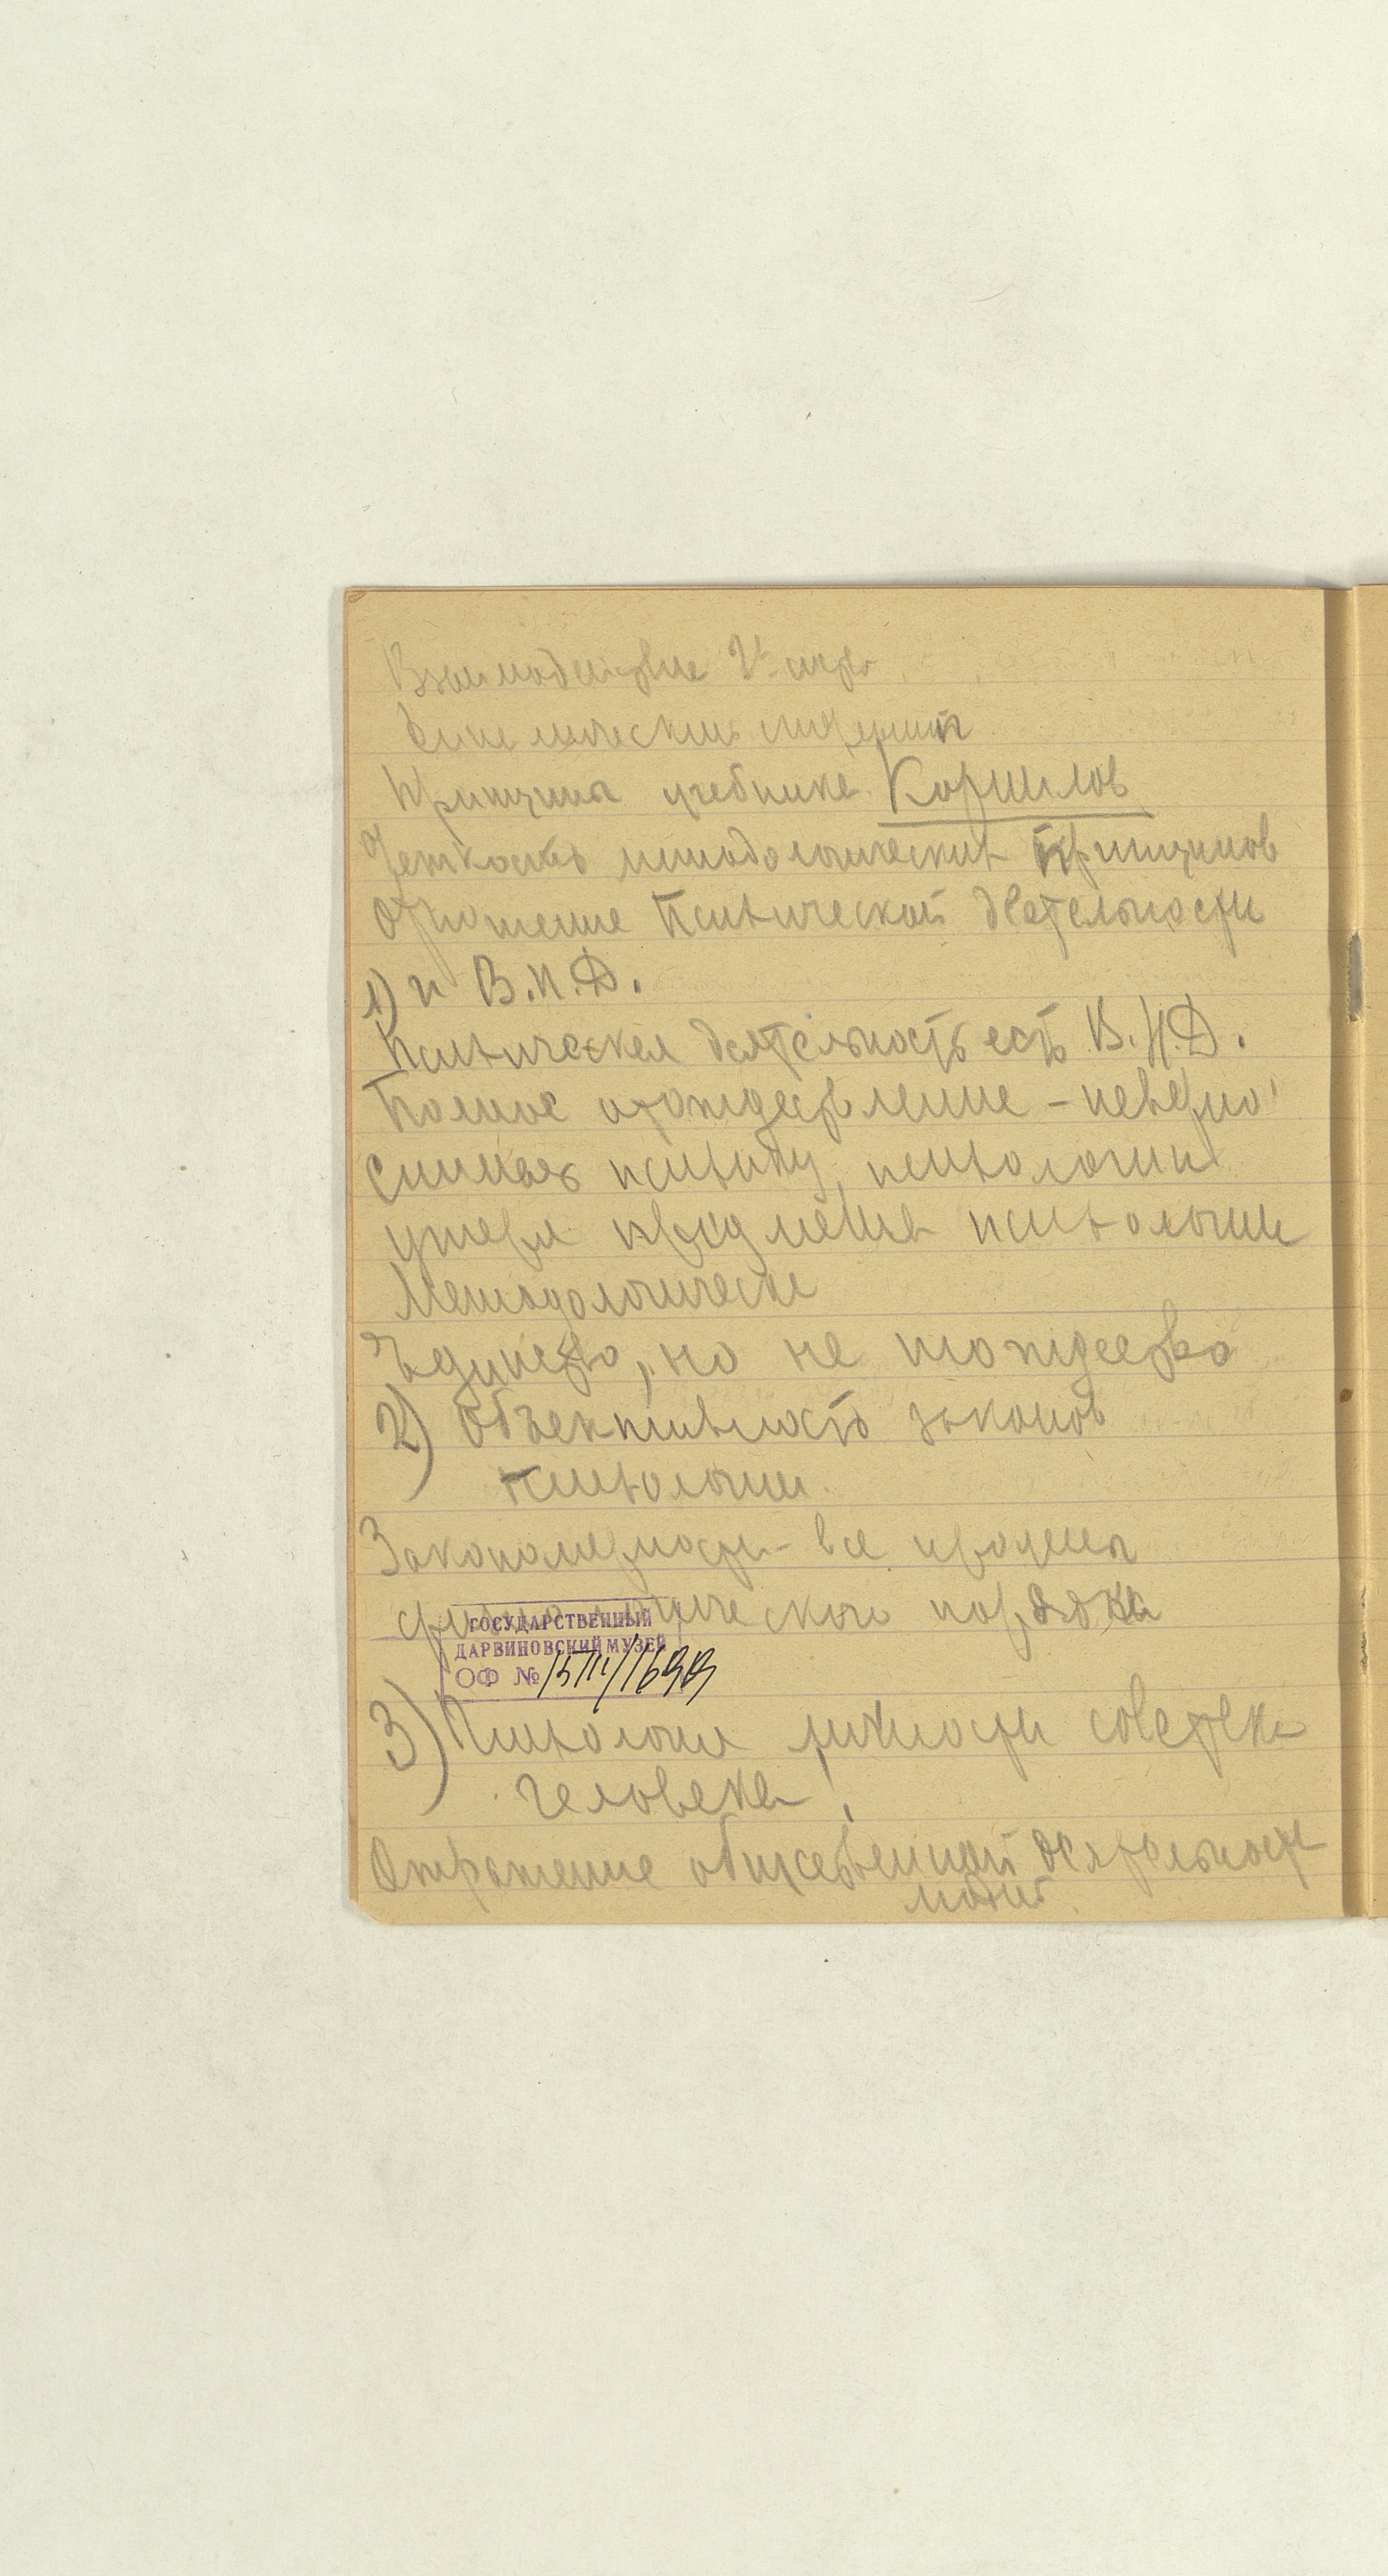 Взаимодействие 2х сигн.
Критика учебника Корнилов
Четкость методологических принципов
Отношение психической деятельности
1) к В.Н.Д.
Психическая деятельность есть В.Н.Д.
Полное отождествление – неверно
Снимает психику, психологии
утеря предмета психологии
Методологически
Единство, но не тождество
2) Объективность законов
психологии.
Закономерности – все процессы
физиологического порядка
ГОСУДАРСТВЕННЫЙ
ДАРВИНОВСКИЙ МУЗЕЙ
ОФ №
3) Психология личности советск
человека!
Отражение общественной деятельност